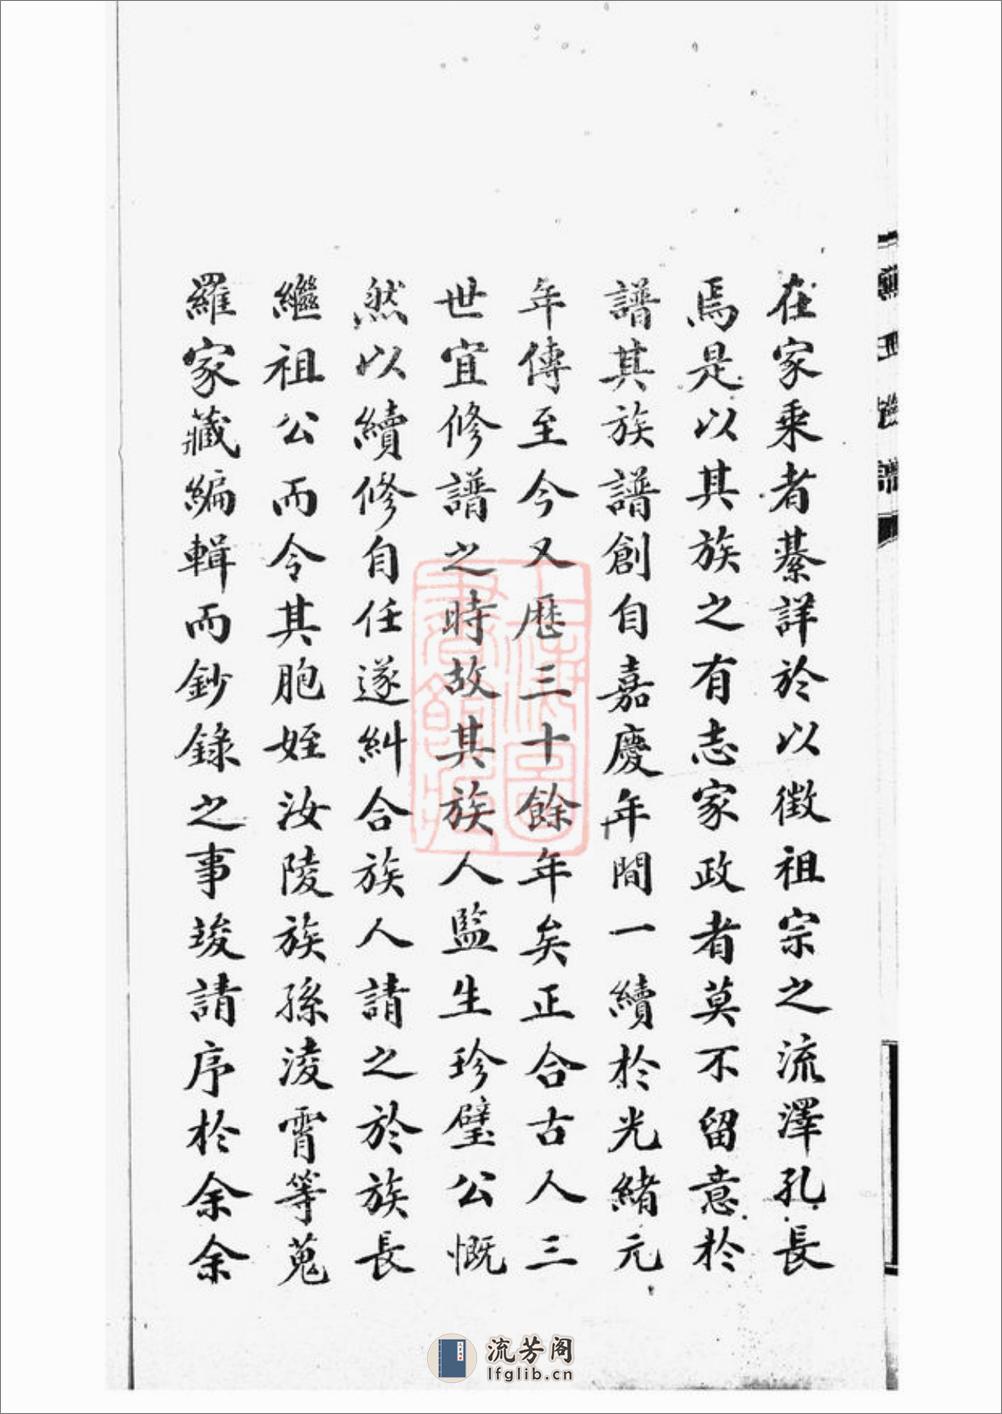 在家乘者綦詳於以徵祖宗之流澤孔長
焉是以其族之有志家政者莫不留意於
譜其族譜創自嘉慶年間一續於光緒元
年傳至今又歷三十餘年矣正合古人三
世宜修譜之時故其族人監生珍璧公慨
然以續修自任遂糾合族人請之於族長
繼祖公而令其胞姪汝陵族孫淩霄等蒐
羅家藏編輯而鈔錄之事竣請序於余余
上海圖書館藏
流芳阁
lfglib.cn